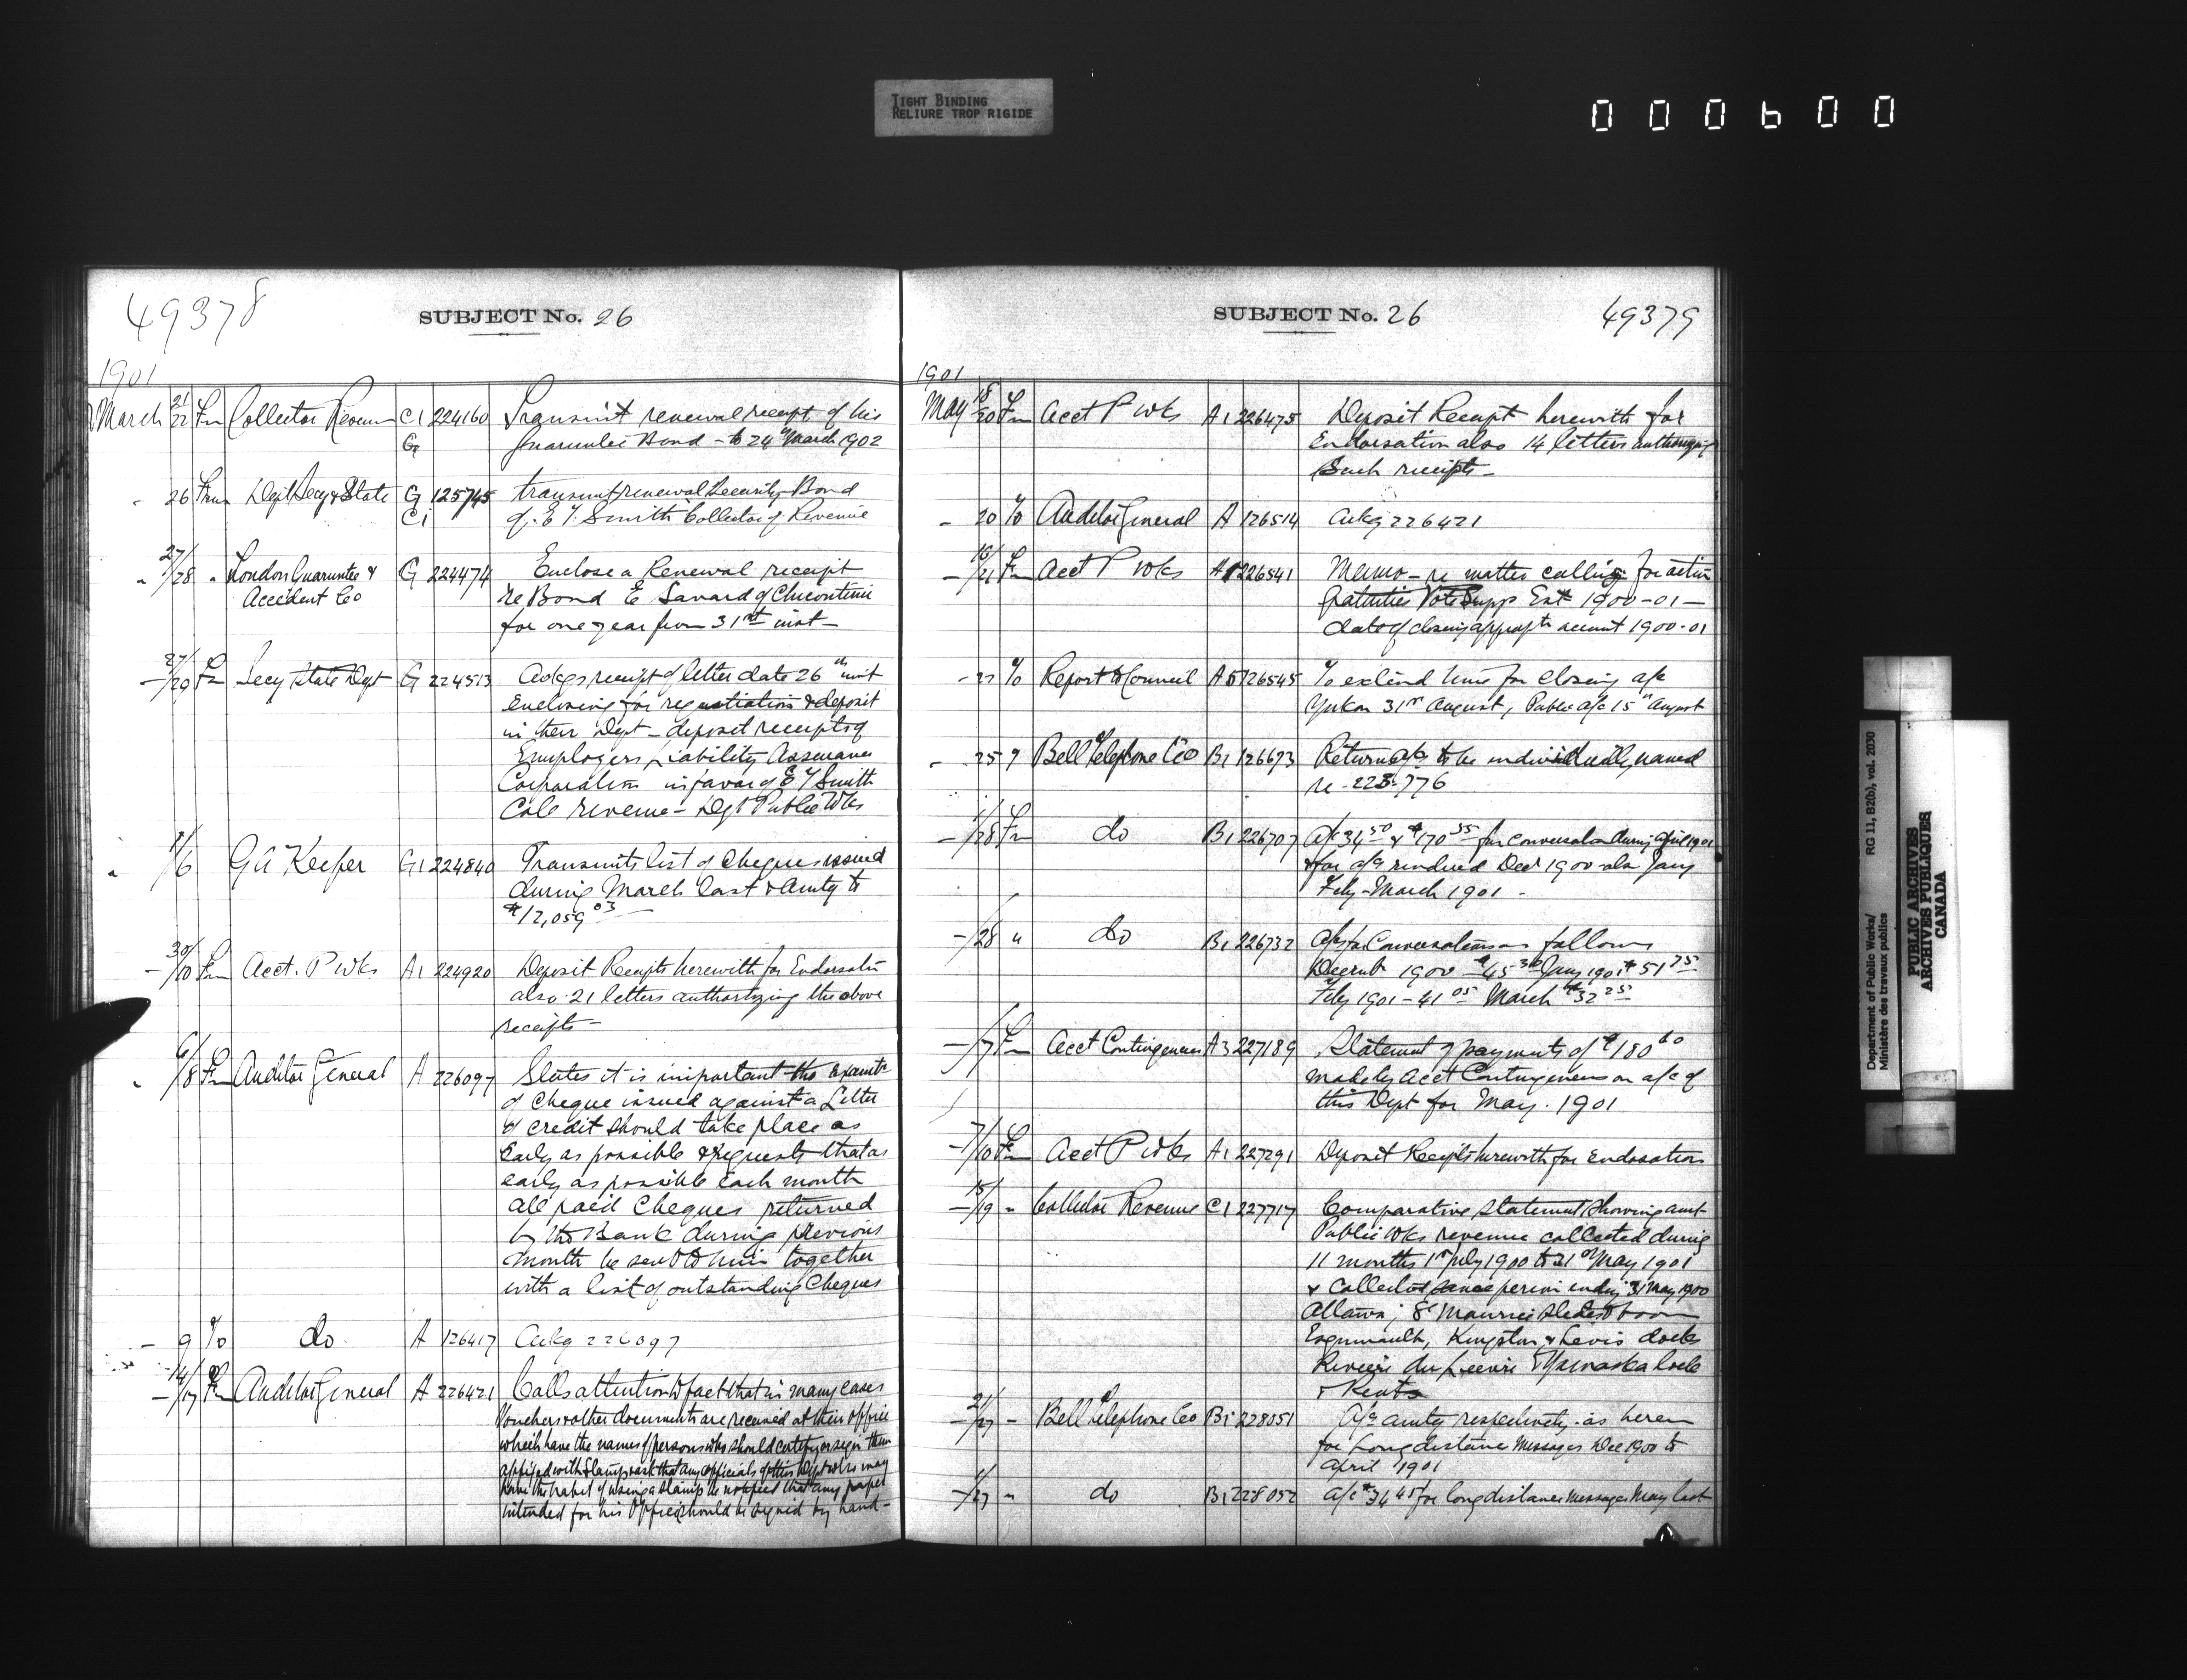 TIGHT BINDING
RELIURE TROP RIGIDE
000600
49378
SUBJECT No. 26
1901
March 21/22 Fm Collector Revenue C1 224160 Transmit renewal receipt of his
G Guarantee Bond - to 24th March 1902
- 26 From Dept Secy of State G 125745 transmit renewal Security Bond
C1 of E T. Smith Collector of Revenue
" 27/28 " London Guarantee & G 224474 Enclose a Renewal receipt
Accident Co re Bond E Savard of Chicoutimi
for one year from 31st inst -
- 27/29 Fm Secy State Dept G 224513 Ackgs receipt of letter date 26th inst
Enclosing for registration & deposit
in their Dept - deposit receipts of
Employers Liability Assurance
Corporation in favor of E T Smith
Colr revenue - Dept Public Wks
/6 GA Keefer G1 224840 Transmits list of Cheques issued
during March last & amtg to
$12,059 03 -
- 30/10 Fm Acct. P Wks A1 224920 Deposit Receipts herewith for Endorsatn
also 21 letters authorizing the above
receipts -
" 6/8 Fm Auditor General A 226097 States it is important the examtn
of Cheque issued against a Letter
of credit should take place as
Early as possible & requests that as
early as possible each month
all paid Cheques returned
by the Bank during previous
month be sent to him together
with a list of outstanding Cheques
- 9 To do A 126417 Ackg 226097
- 14/17 Fm Auditor General A 226421 Calls attention to fact that in many cases
Vouchers & other documents are received at their office
which have the names of persons who should certify or sign them
affixed with Stamps & ask that any officials of this Dept who may
have the habit of using a stamp be notified that any paper
intended for his Office should be signed by hand -
SUBJECT No. 26
49379
1901
May 18/20 Fm Acct P Wks A1 226475 Deposit Receipt herewith for
Endorsation also 14 letters authorizing
Such receipts -
- 20 To Auditor General A 126514 Ackg 226421
- 18/21 Fm Acct P Wks A1 226541 Memo - re matter calling for action
Gratuities Vote Supp Est 1900-01 -
date of closing approptn account 1900-01
- 21 To Report to Council A5 126545 To extend time for Closing a/c
Yukon 31st August, Public a/c 15th August
- 25 " Bell Telephone Co B1 126673 Return a/cs to be individually named
re - 223776
- /28 Fm do B1 226707 A/c 34 50 & $170 55 for conversation during April 1901
& for a/cs rendered Decr 1900 also Jany
Feby - March 1901 -
- /28 " do B1 226732 A/cs for Conversations as follows
Decmbr 1900 $45 30 Jany 1901 $51 75
Feby 1901 - 41 05 March $32 25
- /7 Fm Acct Contingencies A3 227189 Statement of payments of $180 60
made by Acct Contingencies on a/c of
this Dept for May. 1901
- 7/10 Fm Acct P Wks A1 227291 Deposit Receipts herewith for Endorsation
- 15/19 " Collector Revenue C1 227717 Comparative Statement showing amt
Public Wks revenue collected during
11 months 1st July 1900 to 31st May 1901
& Collected same period ending 31 May 1900
Ottawa; St Maurice slides & boom
Esquimault, Kingston & Levis docks
Rivière du Lievre & Yamaska lock
& Rents
- 21/27 - Bell Telephone Co B1 228051 A/cs amtg respectively as herein
for Long distance Messages Dec 1900 to
April 1901
- /27 " do B1 228052 a/c $34 45 for long distance Messages May last
Department of Public Works/
Ministère des travaux publics
RG 11, B2(b), vol. 2030
PUBLIC ARCHIVES
ARCHIVES PUBLIQUES
CANADA